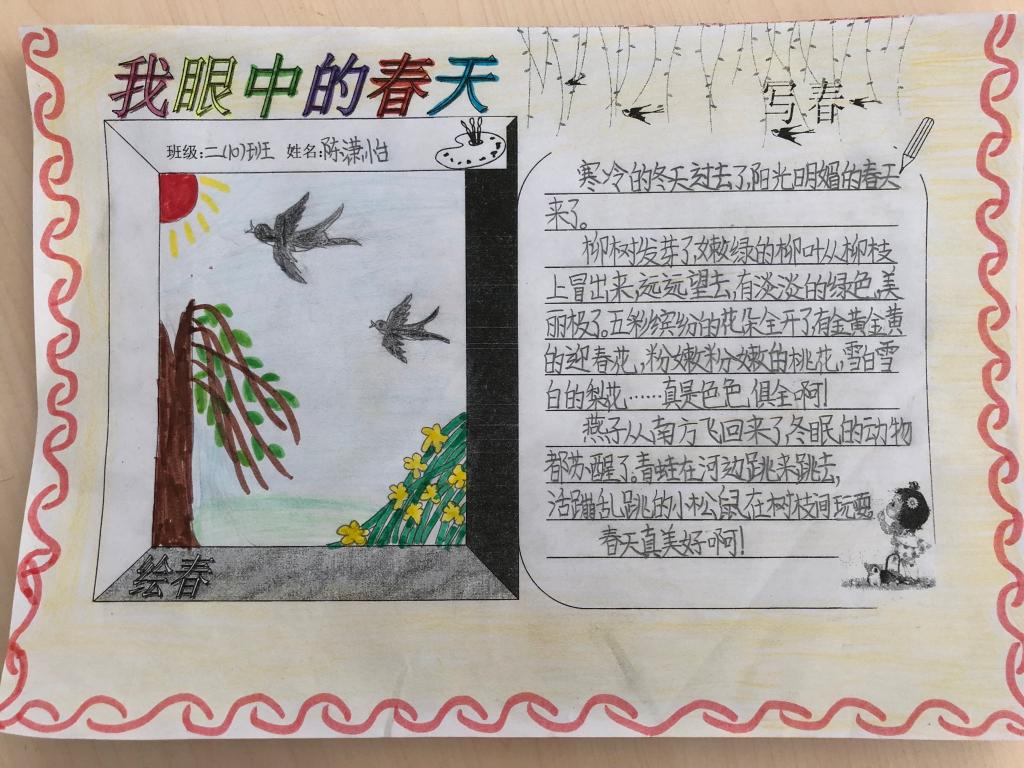 我眼中的春天
班级:二(10)班 姓名:陈潇怡
绘春
写春
寒冷的冬天过去了,阳光明媚的春天
来了。
柳树发芽了,嫩绿的柳叶从柳枝
上冒出来,远远望去,有淡淡的绿色,美
丽极了。五彩缤纷的花朵全开了有金黄金黄
的迎春花,粉嫩粉嫩的桃花,雪白雪
白的梨花……真是色色俱全啊!
燕子从南方飞回来了,冬眠的动物
都苏醒了。青蛙在河边跳来跳去,
活蹦乱跳的小松鼠在树枝间玩耍
春天真美好啊!